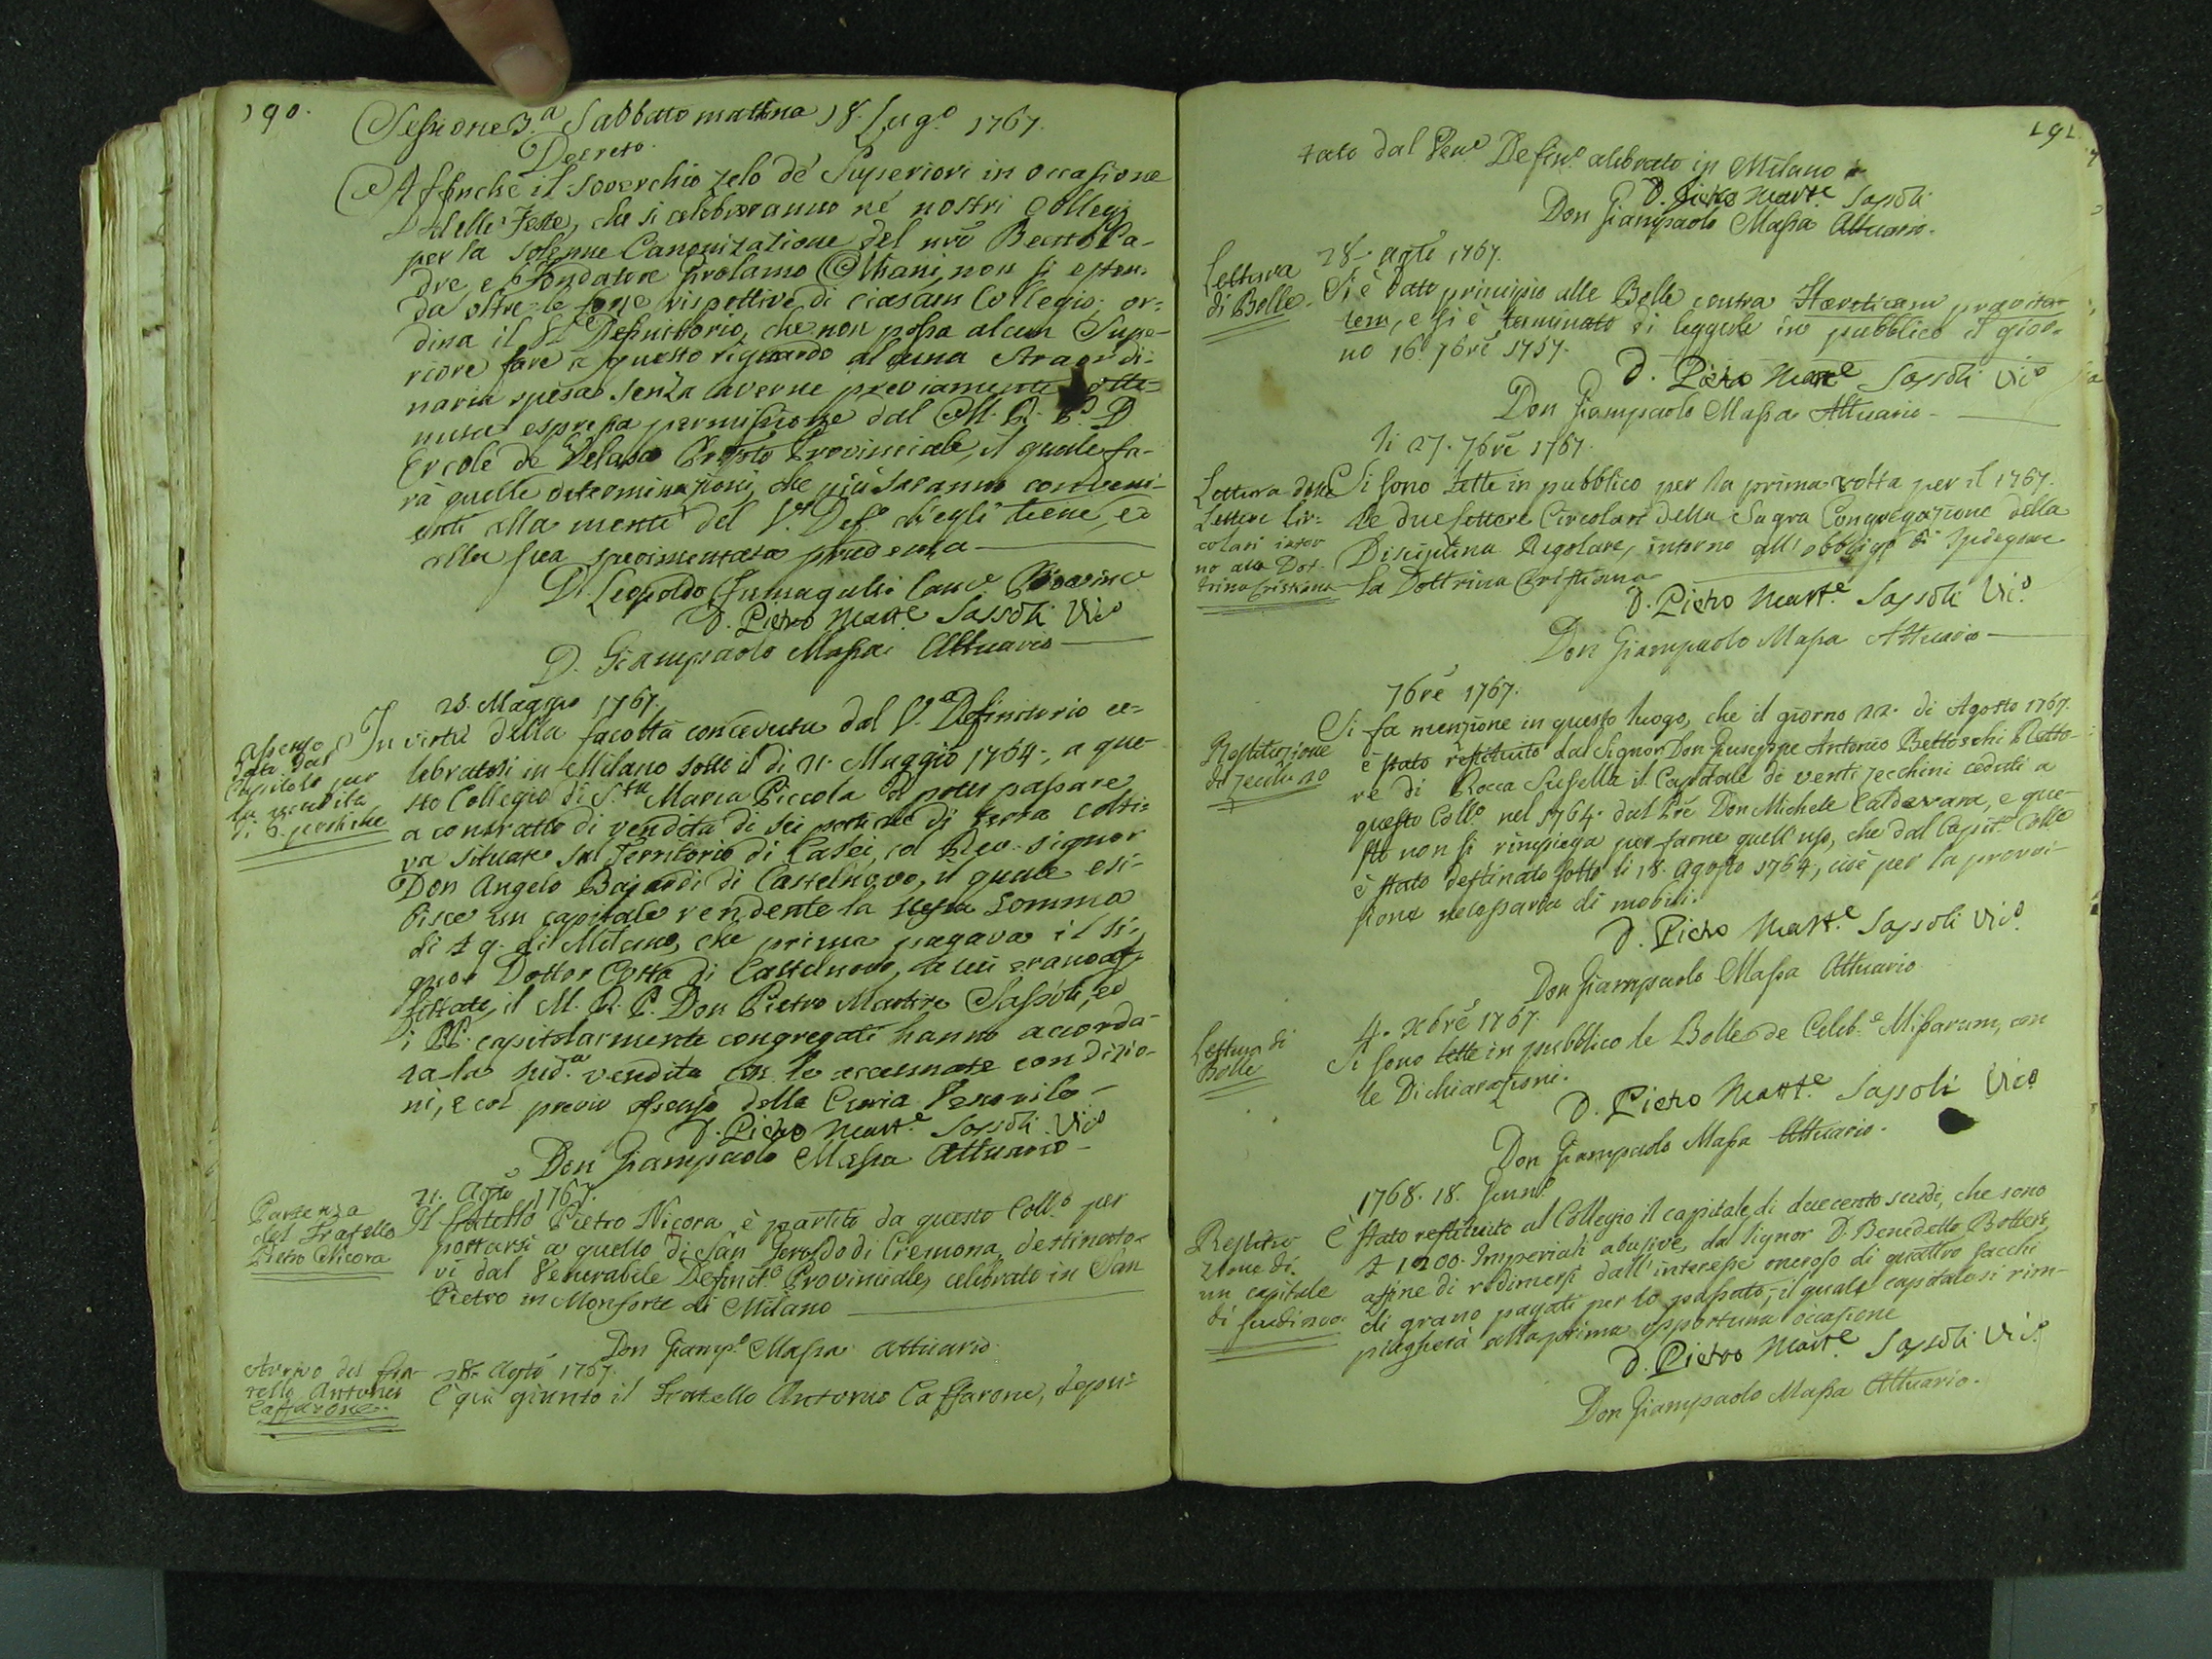 190.
Sessione 3.a Sabbato mattina 18. Lug.o 1767.
Decreto.
Affinchè il soverchio zelo de' Superiori in occasione
delle Feste, che si celebreranno ne' nostri Collegj
per la solenne Canonizatione del nrô Beato Pa-
dre e Fondatore Girolamo Miani, non si esten-
da oltre le forze rispettive di ciascun Collegio, or-
dina il V. Definittorio, che non possa alcun Supe-
riore fare a questo riguardo alcuna straordi-
naria spesa senza averne previamente otte-
nuta espressa permissione dal M. R. P. D.
Ercole de Velasco Prep.to Provinciale, il quale fa-
rà quelle determinazioni, che più saranno conveni-
enti alla mente del V. Def.o ch'egli tiene, ed
alla sua sperimentata prudenza
D. Leopoldo Fumagalli Canc.e Provinc.
D. Pietro Mart.e Sassoli Vic.o
D. Giampaolo Massa Attuario
Assenso
dato dal
Capitolo per
la vendita
di 6 pertiche
28. Maggio 1767.
In virtù della facoltà conceduta dal V. Definitorio ce-
lebratosi in Milano sotto il dì 21. Maggio 1764., a que-
sto Collegio di S.ta Maria Piccola di poter passare
a contratto di vendita di sei pertiche di terra colti-
va situate sul Territorio di Casei, al Rev. Signor
Don Angelo Bajardi di Castelnovo, il quale esi-
bisce un capitale rendente la stessa somma
di £ 9. di Milano, che prima pagava il Si-
gnor Dottor Costa di Castelnovo, a cui erano af-
fittate, il M. R. P. Don Pietro Martire Sassoli, ed
i PP. capitolarmente congregati hanno accorda-
ta la sud.a vendita con le accennate condizio-
ni, e col previo assenso della Curia Vescovile
D. Pietro Mart.e Sassoli Vic.o
Don Giampaolo Massa Attuario
Partenza
del Fratello
Pietro Nicora
21. Agto 1767.
Il fratello Pietro Nicora è partito da questo Coll.o per
portarsi a quello di San Geroldo di Cremona, destinato-
vi dal Venerabile Definit.o Provinciale, celebrato in San
Pietro in Monforte di Milano
Don Giamp.o Massa Attuario
Arrivo del Fra-
tello Antonio
Caffarone.
28. Agto 1767.
È quì giunto il Fratello Antonio Caffarone, depu-
191.
tato dal Ven.e Defin.o celebrato in Milano
D. Pietro Mart.e Sassoli
Don Giampaolo Massa Attuario.
Lettura
di Bolle.
28. Agtô 1767.
Si è dato principio alle Bolle contra Hæreticam pravita-
tem, e si è terminato di leggerle in pubblico il gior-
no 16. 7brê 1767.
D. Pietro Mart.e Sassoli Vic.o
Don Giampaolo Massa Attuario
Lettura delle
Lettere Cir-
colari intor
no alla Dot-
trina Cristiana
li 27. 7brê 1767.
Si sono lette in pubblico per la prima volta per il 1767.
le due lettere Circolari della Sagra Congregazione della
Disciplina Regolare, intorno all'obbligo di spiegare
la Dottrina Cristiana
D. Pietro Mart.e Sassoli Vic.o
Don Giampaolo Massa Attuario
Restituzione
di zecch. 20
7brê 1767.
Si fa menzione in questo luogo, che il giorno 22. di Agosto 1767.
è stato restituito dal Signor Don Giuseppe Antonio Bettoschi Retto-
re di Rocca Susella il Capitale di venti zecchini ceduti a
questo Coll.o nel 1764. dal Prê Don Michele Caldarara, e que-
sto non si rimpiega per farne quell'uso, che dal Capit.o Coll.e
è stato destinato sotto li 18. Agosto 1764, cioè per la provvi-
sione necessaria di mobili.
D. Pietro Mart.e Sassoli Vic.o
Don Giampaolo Massa Attuario
Lettura di
Bolle
4. xbrê 1767.
Si sono lette in pubblico le Bolle de Celeb.e Missarum, con
le Dichiarazioni.
D. Pietro Mart.e Sassoli Vic.o
Don Giampaolo Massa Attuario.
Restitu-
zione di
un capitale
di scudi 200.
1768. 18. Genn.o
È stato restituito al Collegio il capitale di duecento scudi, che sono
£ 1200. Imperiali abusive, dal Signor D. Benedetto Botteri,
affine di redimersi dall'interesse oneroso di quattro sacchi
di grano pagati per lo passato, il quale capitale si rim-
piegherà alla prima opportuna occasione
D. Pietro Mart.e Sassoli Vic.o
Don Giampaolo Massa Attuario.